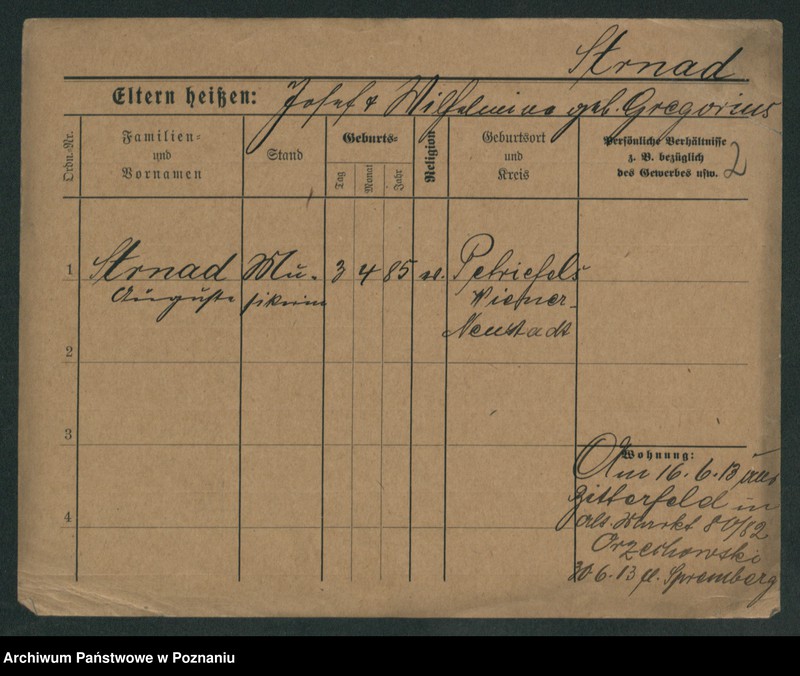 Strnad
Eltern heißen: Josef & Wilhelmine geb. Gregorius
Ordn.-Nr.
Familien-
und
Vornamen
Stand
Geburts-
Tag
Monat
Jahr
Religion
Geburtsort
und
Kreis
Persönliche Verhältnisse
z. B. bezüglich
des Gewerbes usw.
2
1 Strnad Mu- 3 4 85 Petriefels
Auguste sikerin Wiener-
Neustadt
2
3
Wohnung:
Am 16.6.13 aus
Bitterfeld in
Alt. Markt 80/82
4
Orzechowski
30 6.13 Spremberg
Archiwum Państwowe w Poznaniu